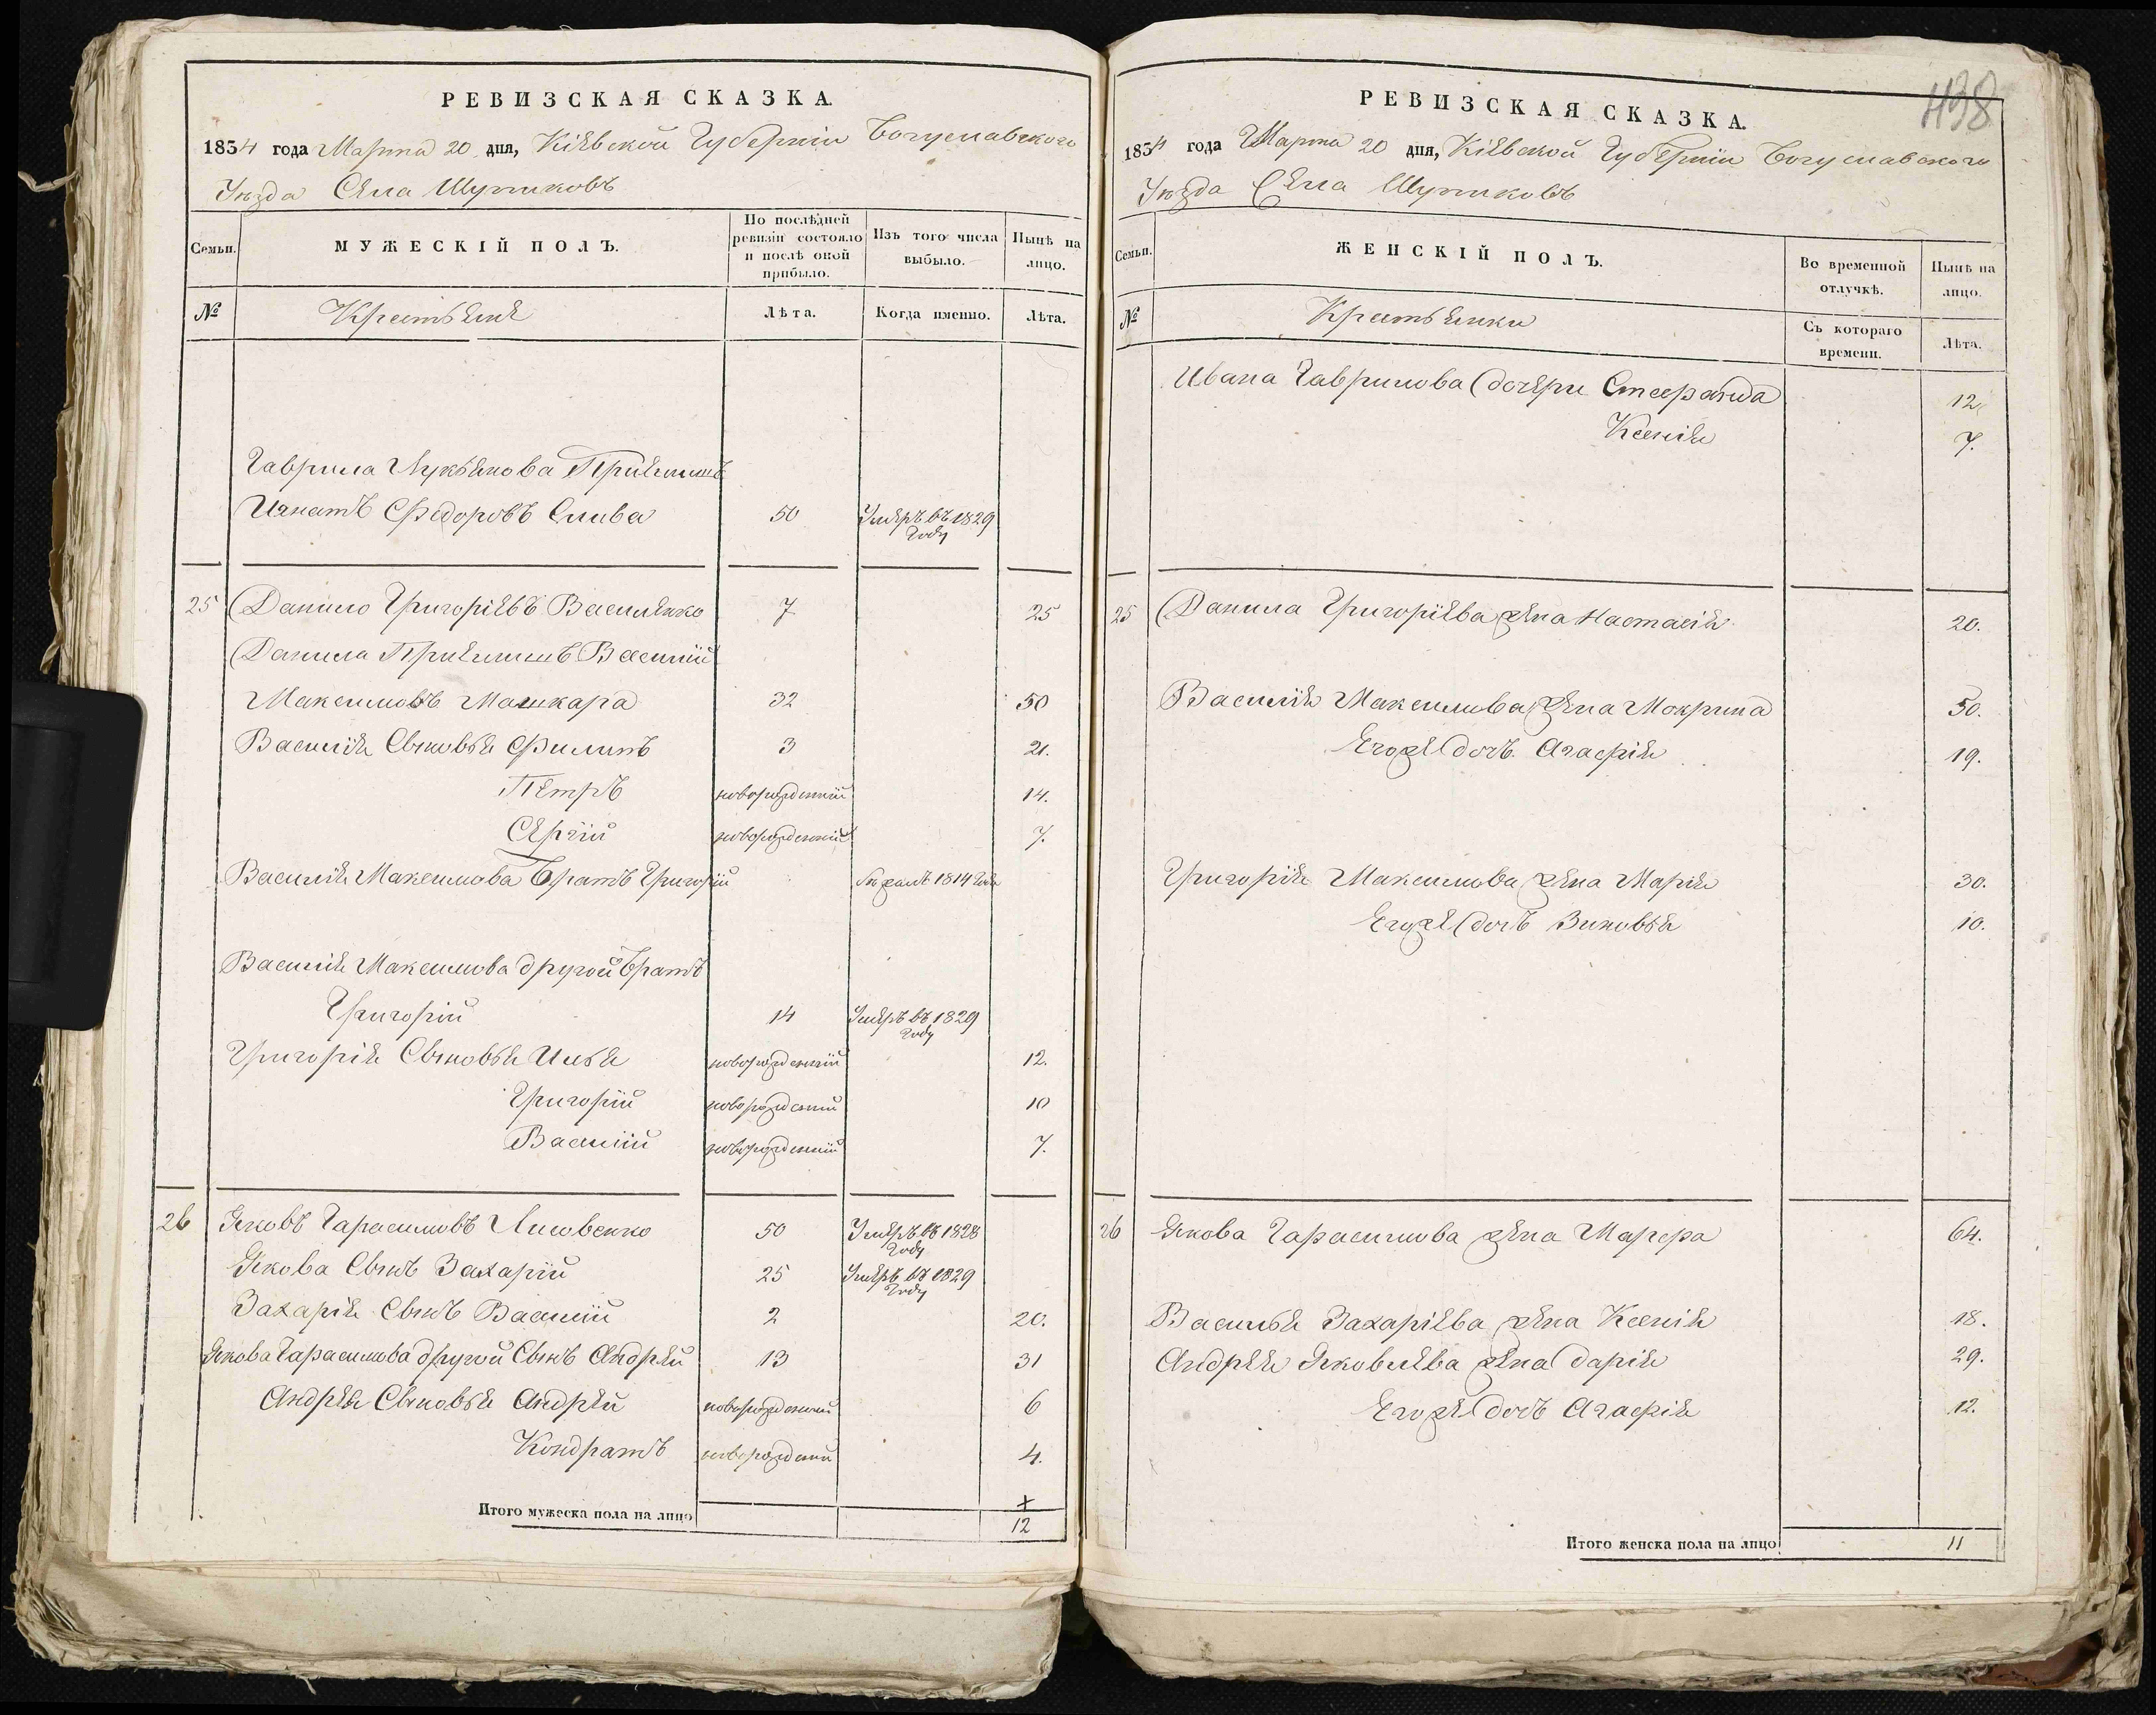 РЕВИЗСКАЯ СКАЗКА.
1834 года Марта 20 дня, Кіевской Губерніи Богуславского
Уѣзда Села Шупиковъ
Семьи. МУЖЕСКІЙ ПОЛЪ. По послѣдней ревизіи состояло и послѣ оной прибыло. Изъ того числа выбыло. Нынѣ на лицо.
№ Крестьяне Лѣта. Когда именно. Лѣта.
Гаврила Лукьянова Пріемишъ
Игнатъ Федоровъ Слива 50 Умеръ въ 1829
году
25 Данило Григоріевъ Василенко 7 25
Данила Пріемишъ Василій
Максимовъ Машкара 32 50
Василія Сыновья Филипъ 3 21.
Петръ новорожденный 14.
Сергій новорожденный 7.
Василія Максимова Братъ Григорій 1814 года
Василія Максимова другой Братъ
Григорій 14 Умеръ въ 1829
году
Григорія Сыновья Илья новорожденный 12.
Григорій новорожденный 10
Василій новорожденный 7.
26 Яковъ Гарасимовъ Лисовенко 50 Умеръ въ 1828
году
Якова Сынъ Захарій 25 Умеръ въ 1829
году
Захарія Сынъ Василій 2 20.
Якова Гарасимова другой Сынъ Андрей 13 31
Андрея Сыновья Андрей новорожденный 6
Кондратъ новорожденный 4.
Итого мужеска пола на лицо 12
438
РЕВИЗСКАЯ СКАЗКА.
1834 года Марта 20 дня, Кіевской Губерніи Богуславского
Уѣзда Села Шупиковъ
Семьи. ЖЕНСКІЙ ПОЛЪ. Во временной отлучкѣ. Нынѣ на лицо.
№ Крестьянки Съ котораго времени. Лѣта.
Ивана Гаврилова дочери 12
Ксенія 7.
25 Данила Григоріева жена Настасія 20.
Василія Максимова жена Мокрина 50.
Егоже дочь Агафія 19.
Григорія Максимова жена Марія 30.
Егоже дочь Зиновья 10.
26 Якова Гарасимова жена Марфа 64.
Василья Захаріева жена Ксенія 18.
Андрея Яковлева жена Дарія 29.
Егоже дочь Агафія 12.
Итого женска пола на лицо 11